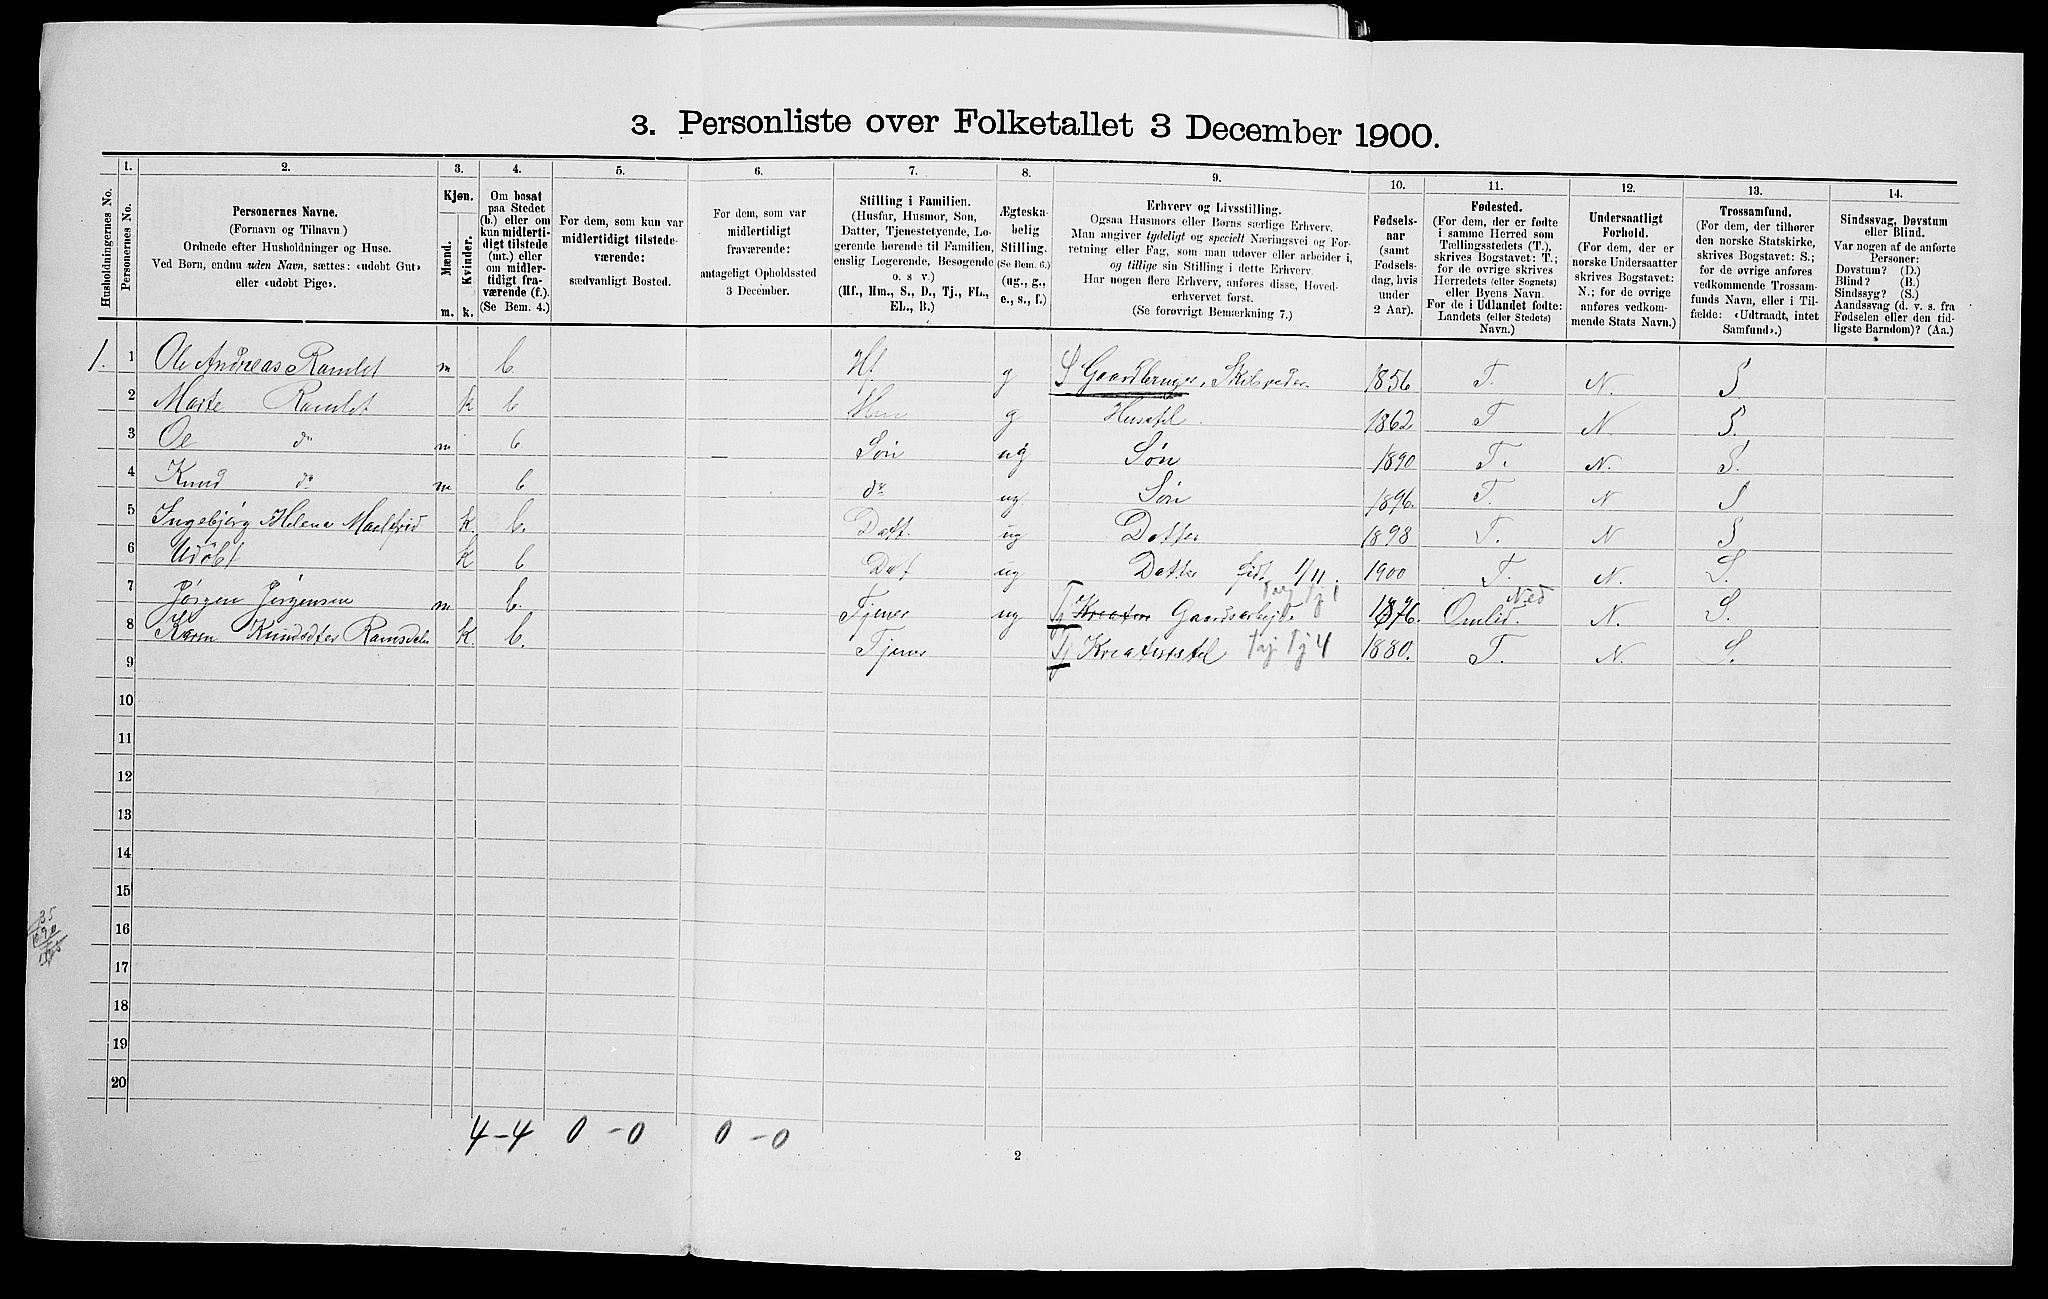 3. Personliste over Folketallet 3 December 1900.
1. 2. 3. 4. 5. 6. 7. 8. 9. 10. 11. 12. 13. 14.
Husholdningernes No.
Personernes No.
Personernes Navne.
(Fornavn og Tilnavn)
Ordnede efter Husholdninger og Huse.
Ved Børn, endnu uden Navn, sættes: «udøbt Gut»
eller «udøbt Pige».
Kjøn.
Mænd.
Kvinder.
m. k.
Om bosat
paa Stedet
(b.) eller om
kun midlerti-
digt tilstede
(mt.) eller
om midler-
tidigt fra-
værende (f.).
(Se Bem. 4.)
For dem, som kun var
midlertidigt tilstede-
værende:
sædvanligt Bosted.
For dem, som var
midlertidigt
fraværende:
antageligt Opholdssted
3 December.
Stilling i Familien.
(Husfar, Husmor, Søn,
Datter, Tjenestetyende, Lo-
gerende hørende til Familien,
enslig Logerende, Besøgende
o. s. v.)
(Hf., Hm., S., D., Tj., FL.,
EL., B.)
Ægteska-
belig
Stilling.
(Se Bem. 6.)
(ug., g.,
e., s., f.)
Erhverv og Livsstilling.
Ogsaa Husmors eller Børns særlige Erhverv.
Man angiver tydeligt og specielt Næringsvei og For-
retning eller Fag, som man udøver eller arbeider i,
og tillige sin Stilling i dette Erhverv.
Har nogen flere Erhverv, anføres disse, Hoved-
erhvervet først.
(Se forøvrigt Bemærkning 7.)
Fødsels-
aar
(samt
Fødsels-
dag, hvis
under
2 Aar).
Fødested.
(For dem, der er fødte
i samme Herred som
Tællingsstedets (T.),
skrives Bogstavet: T.;
for de øvrige skrives
Herredets (eller Sognets)
eller Byens Navn.
For de i Udlandet fødte:
Landets (eller Stedets)
Navn.)
Undersaatligt
Forhold.
(For dem, der er
norske Undersaatter
skrives Bogstavet:
N.; for de øvrige
anføres vedkom-
mende Stats Navn.)
Trossamfund.
(For dem, der tilhører
den norske Statskirke,
skrives Bogstavet: S.;
for de øvrige anføres
vedkommende Trossam-
funds Navn, eller i Til-
fælde: «Udtraadt, intet
Samfund».)
Sindssvag, Døvstum
eller Blind.
Var nogen af de anførte
Personer:
Døvstum? (D.)
Blind? (B.)
Sindssyg? (S.)
Aandssvag (d. v. s. fra
Fødselen eller den tid-
ligste Barndom)? (Aa.)
1. 1 Ole Andreas Ramlet m b. Hf g S Gaardbruger, Skibsreder. 1856 T. N. S.
2 Marte Ramlet k b Hm g Husstel 1862 T N. S.
3 Ole do m b Søn ug Søn 1890 T. N. S.
4 Knud do m b do ug. Søn 1896. T. N S
5 Ingebjørg Helena k b. Datt. ug Datter 1898 T. N S
6 Udöbt k b Dat ug Datter fød 1/11. 1900 T. N. S.
7 Jörgen Jörgensen m b. Tjener ug Tj Kreatur Gaardsarbejd 1876. Omlid. N. S.
8 Karen Knudsdter k b. Tjener Tj Kreaturstel Tj Tj 4 1880. T. N. S.
9
10
11
12
13
14
15
16
17
18
19
20
4–4 0–0 0–0
2